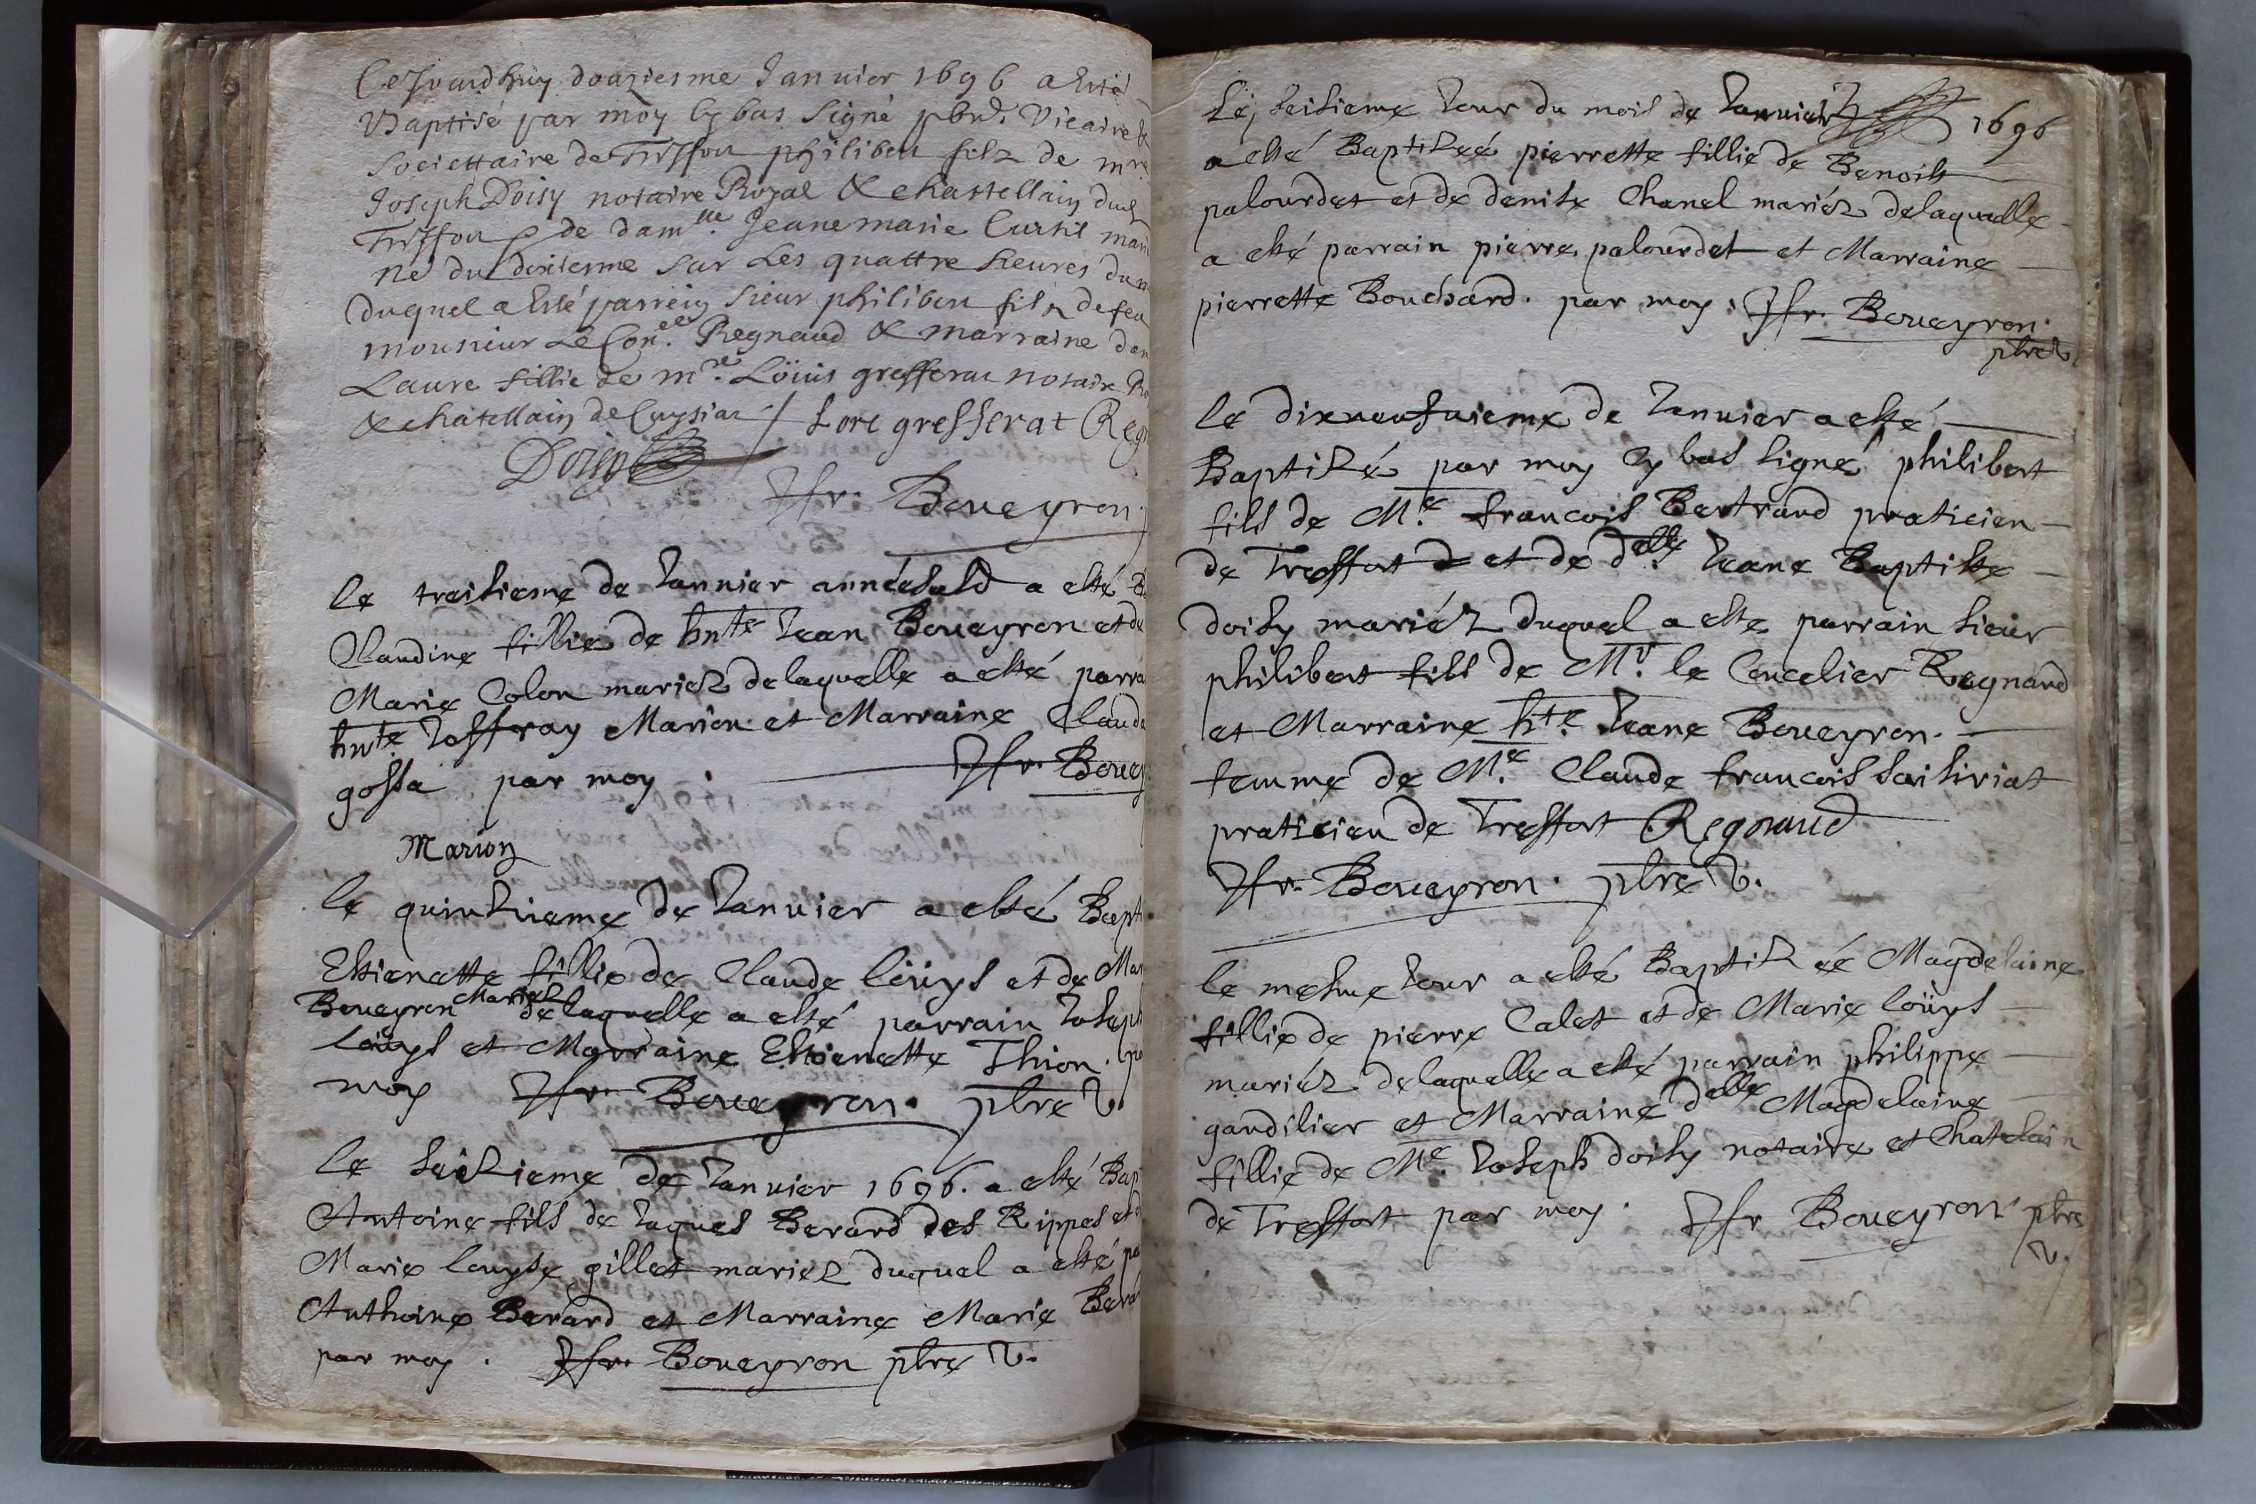 Ce Jourdhuy douziesme Januier 1696 a Esté
Baptisé par moy Cy bas Signé pbrê. Vicaire &
Societtaire de Treffort philibert filz de mre
Joseph Doisy notaire Royal & chastellain dud
Treffort & de damlle. Jeanemarie Curtil mari
né du dixiesme sur Les quattre heures du m
duquel a Esté parrein Sieur philibert filz de feu
monsieur Le Coner. Regnaud & marraine dam
Laure fillie de mre. Loüis grefferat notaire Ro
& chatellain de Cuysiat / Lore grefferat Regn
Doisy
Jfr. Boueyron.
le treisieme de Januier annéesusd a esté B
Claudine fillie de hnte Jean Boueyron et de
Marie Colon mariez delaquelle a esté parra
hnte Joffray Marion et Marraine Claude
gossa par moy . Jfr. Bouey
Marion
le quinzieme de Januier a esté Bapt
Estienette fillie de Claude loüys et de Mar
Boueyron Mariez delaquelle a esté parrain Joseph
loüys et Marraine Estienette Thion . pa
moy Jfr. Boueyron . ptre v.
le seizieme de Januier 1696. a esté Bap
Antoine fils de Jaques Berard des Rippes et d
Marie louyse gillet mariez duquel a esté pa
Anthoine Berard et Marraine Marie Berar
par moy . Jfr. Boueyron ptre v.
Le seisieme Jour du mois de Januier 1696
a esté Baptizeé pierrette fillie de Benoist
palourdet et de denise Chanel mariéz delaquelle
a esté parrain pierre palourdet et Marraine
pierrette Bouchard . par moy . Jfr. Boueyron .
ptre v.
le dixneufuieme de Januier a esté
Baptizé par moy Cy bas signé philibert
fils de Me. francois Bertrand praticien
de Treffort et de delle. Jeane Baptiste
doisy mariéz duquel a este parrain sieur
philibert fils de Mr. le Concelier Regnaud
et Marraine hte. Jeane Boueyron .
femme de Me. Claude francois saisiriat
praticien de Treffort Regnaud
Jfr. Boueyron . ptre v.
le mesme Jour a esté Baptizeé Magdelaine
fillie de pierre Calet et de Marie loüys
mariéz delaquelle a esté parrain philippe
gandilier et Marraine delle Magdelaine
fillie de Me. Joseph doisy notaire et Chatelain
de Treffort par moy . Jfr Boueyron ptre
v.